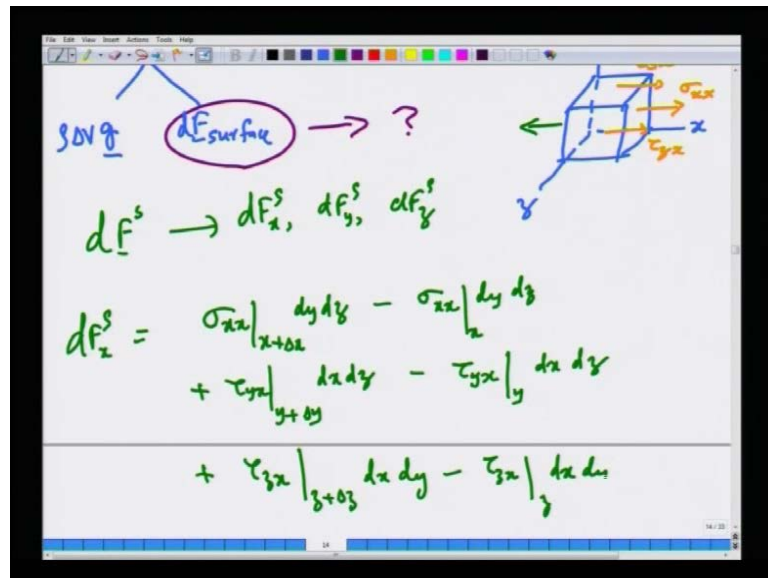 File Edit View Insert Actions Tools Help
σxx
x
τzx
z
ρΔV g dF surface → ?
dF^s → dF_x^s, dF_y^s, dF_z^s
dF_x^s = σxx|x+Δx dy dz - σxx|x dy dz
+ τyx|y+Δy dx dz - τyx|y dx dz
+ τzx|z+Δz dx dy - τzx|z dx dy
14 / 23
14